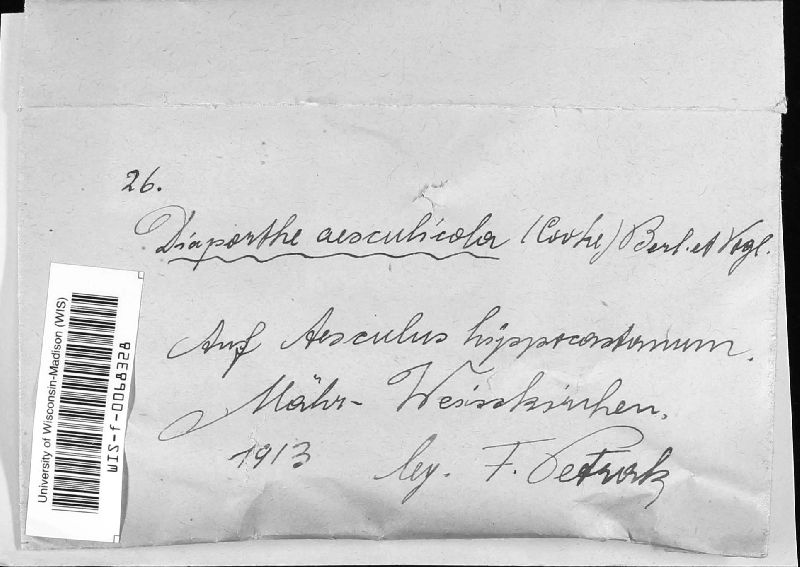 26.
Diaporthe aesculicola (Cooke) Berl. et Vogl.
Auf Aesculus hippocastanum.
Mähr-Weisskirchen.
1913 leg. F. Petrak
University of Wisconsin-Madison (WIS)
WIS-f-0068328